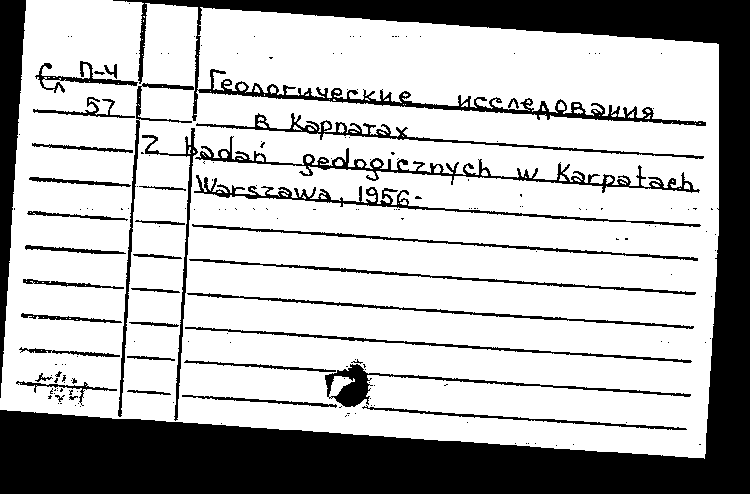 Сл П-Ч
57
Геологические исследования
в Карпатах
Z badań geologicznych w Karpatach
Warszawa, 1956-